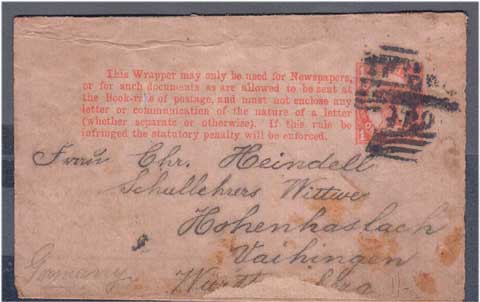 This Wrapper may only be used for Newspapers,
or for such documents as are allowed to be sent at
the Book-rate of postage, and must not enclose any
letter or communication of the nature of a letter
(whether separate or otherwise). If this rule be
infringed the statutory penalty will be enforced.
Frau Chr. Heindell
Schullehrers Wittwe
Hohenhaslach
Vaihingen
Germany